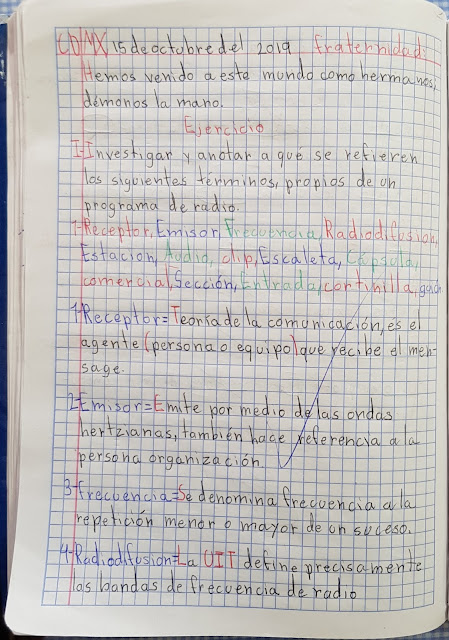 CDMX 15 de octubre del 2019 fraternidad:
Hemos venido a este mundo como hermanos,
démonos la mano.
Ejercicio
I-Investigar y anotar a qué se refieren
los siguientes términos, propios de un
programa de radio.
1-Receptor, Emisor, Frecuencia, Radiodifusion,
Estacion, Audio, clip, Escaleta, Cápsula,
comercial, Sección, Entrada, cortinilla, guión
1-Receptor=Teoría de la comunicación, es el
agente (persona o equipo) que recibe el men-
sage.
2-Emisor=Emite por medio de las ondas
hertzianas, también hace referencia a la
persona organización.
3-frecuencia=Se denomina frecuencia a la
repetición menor o mayor de un suceso.
4-Radiodifusion=La UIT define precisamente
las bandas de frecuencia de radio